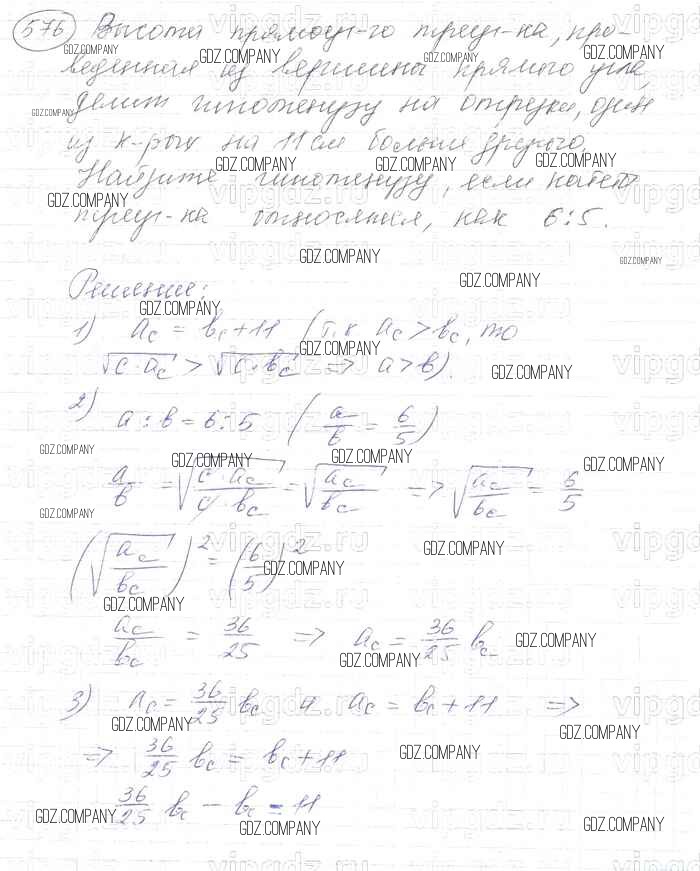 576 Высота прямоуг-го треуг-ка, про-
веденная из вершины прямого угла,
делит гипотенузу на отрезки, один
из к-рых на 11 см больше другого.
Найдите гипотенузу, если катеты
треуг-ка относятся, как 6:5.
Решение:
1) a_c = b_c + 11 (т.к a_c > b_c, то
√(c·a_c) > √(c·b_c) => a > b).
2) a : b = 6 : 5 (a/b = 6/5)
a/b = √((c·a_c)/(c·b_c)) = √(a_c/b_c) => √(a_c/b_c) = 6/5
(√(a_c/b_c))² = (6/5)²
a_c/b_c = 36/25 => a_c = 36/25 b_c
3) a_c = 36/25 b_c и a_c = b_c + 11 =>
=> 36/25 b_c = b_c + 11
36/25 b_c − b_c = 11